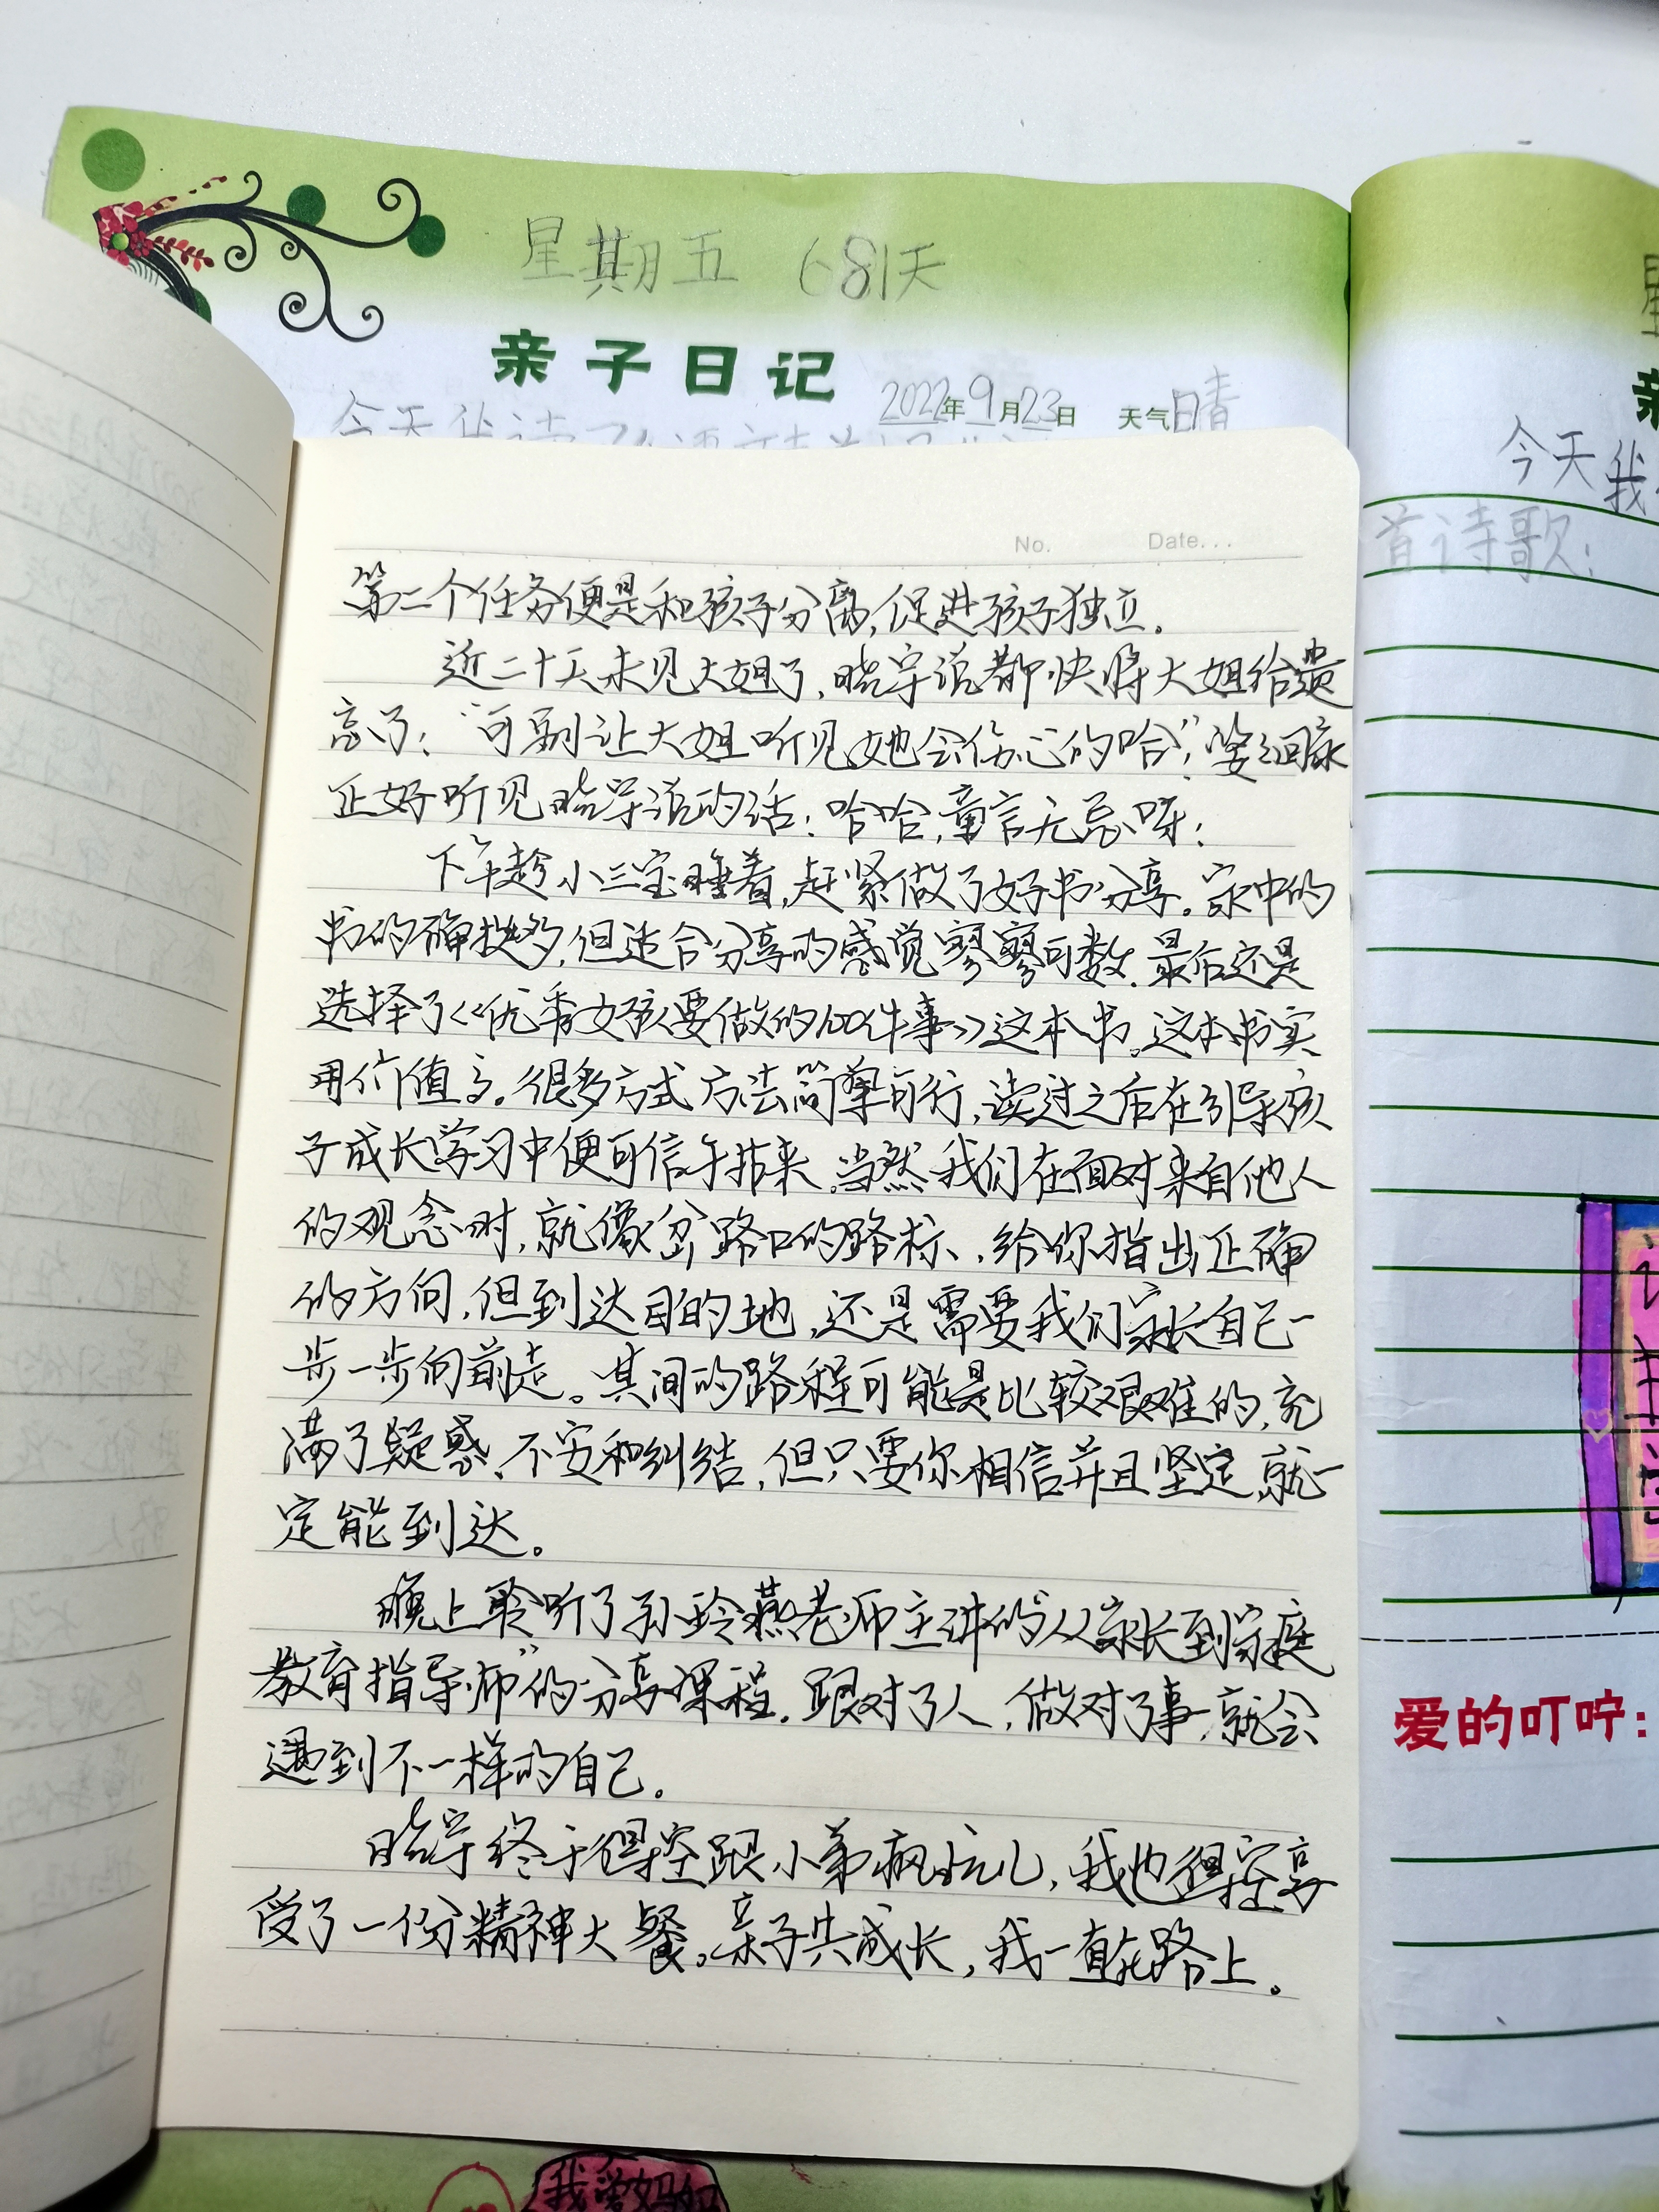 星期五 681天
亲子日记
2022年9月23日 天气 晴
No. Date...
第二个任务便是和孩子分离,促进孩子独立。
近二十天未见大姐了,晓宇说都快将大姐给遗
忘了;“可别让大姐听见她会伤心的哈”,回家
正好听见晓宇说的话;哈哈,童言无忌呀;
下午趁小三宝睡着,赶紧做了好书分享。家中的
书的确挺多,但适合分享的感觉寥寥可数.最后还是
选择了《优秀女孩要做的100件事》这本书。这本书实
用价值高。很多方式方法简单可行,读过之后在引导孩
子成长学习中便可信手拈来。当然我们在面对来自他人
的观念时,就像岔路口的路标、给你指出正确
的方向,但到达目的地,还是需要我们家长自己一
步一步向前走。其间的路程可能是比较艰难的,充
满了疑惑、不安和纠结,但只要你相信并且坚定,就一
定能到达。
晚上聆听了孙玲燕老师主讲的“从家长到家庭
教育指导师”的分享课程.跟对了人,做对了事,就会
遇到不一样的自己。
晓宇终于得空跟小弟疯玩儿,我也得空享
受了一份精神大餐。亲子共成长,我一直在路上。
今天我
首诗歌:
爱的叮咛:
我爱妈妈